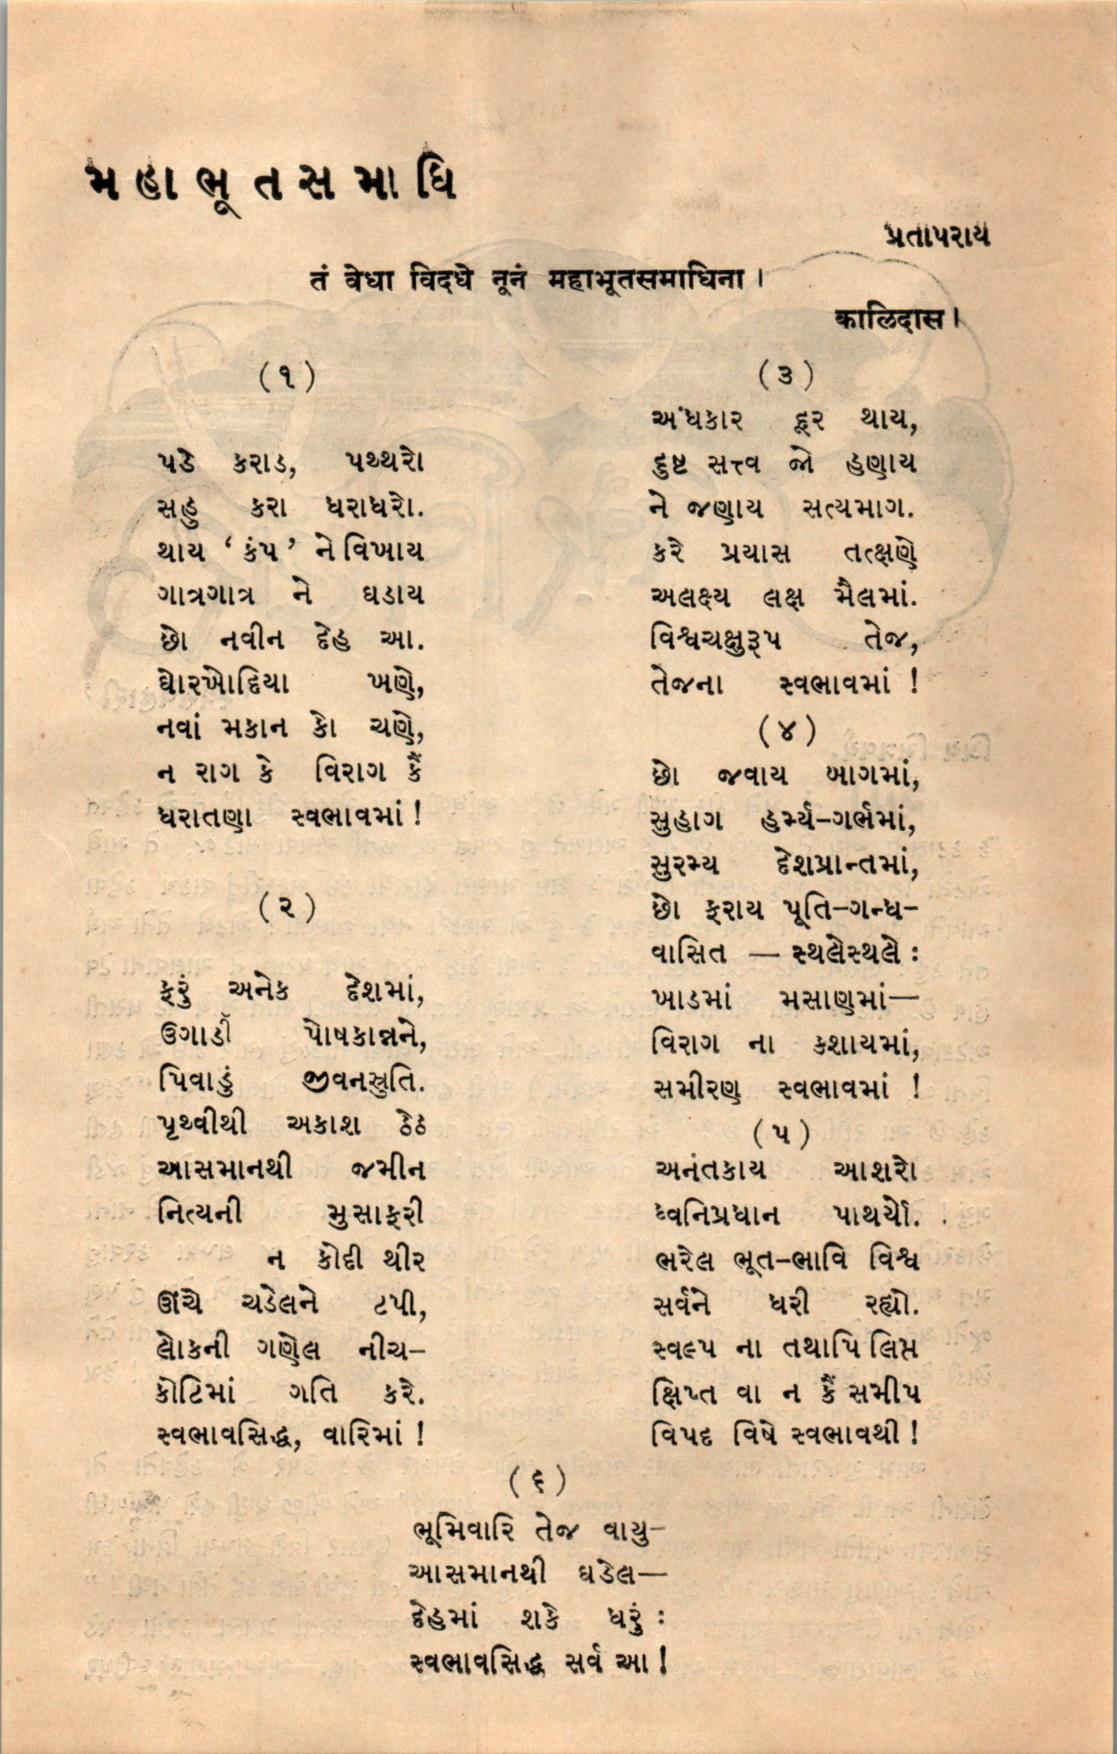 મહાભૂતસમાધિ
પ્રતાપરાય
तं वेधा विदधे नूनं महाभूतसमाधिना ।
कालिदास ।
(૧)
પડે કરાડ, પથ્થરો
સહુ કરા ધરાધરો.
થાય ‘કંપ’ ને વિખાય
ગાત્રગાત્ર ને ઘડાય
છો નવીન દેહ આ.
ઘોરખોદિયા ખણે,
નવાં મકાન કો ચણે,
ન રાગ કે વિરાગ કૈં
ધરાતણા સ્વભાવમાં !
(૨)
ફરું અનેક દેશમાં,
ઉગાડી પોષકાન્નને,
પિવાડું જીવનસ્રુતિ.
પૃથ્વીથી અકાશ ઠેઠ
આસમાનથી જમીન
નિત્યની મુસાફરી
ન કોદી થીર
ઊંચે ચડેલને ટપી,
લોકની ગણેલ નીચ–
કોટિમાં ગતિ કરે.
સ્વભાવસિદ્ધ, વારિમાં !
(૩)
અંધકાર દૂર થાય,
દુષ્ટ સત્ત્વ જો હણાય
ને જણાય સત્યમાગ.
કરે પ્રયાસ તત્ક્ષણે
અલક્ષ્ય લક્ષ મૈલમાં.
વિશ્વચક્ષુરૂપ તેજ,
તેજના સ્વભાવમાં !
(૪)
છો જવાય બાગમાં,
સુહાગ હર્મ્ય–ગર્ભમાં,
સુરમ્ય દેશપ્રાન્તમાં,
છો ફરાય પૂતિ–ગન્ધ–
વાસિત — સ્થલેસ્થલે :
ખાડમાં મસાણમાં—
વિરાગ ના કશાયમાં,
સમીરણ સ્વભાવમાં !
(૫)
અનંતકાય આશરો
ધ્વનિપ્રધાન પાથર્યો.
ભરેલ ભૂત–ભાવિ વિશ્વ
સર્વને ધરી રહ્યો.
સ્વલ્પ ના તથાપિ લિપ્ત
ક્ષિપ્ત વા ન કૈં સમીપ
વિપદ વિષે સ્વભાવથી !
(૬)
ભૂમિવારિ તેજ વાયુ–
આસમાનથી ઘડેલ—
દેહમાં શકે ધરું :
સ્વભાવસિદ્ધ સર્વ આ !